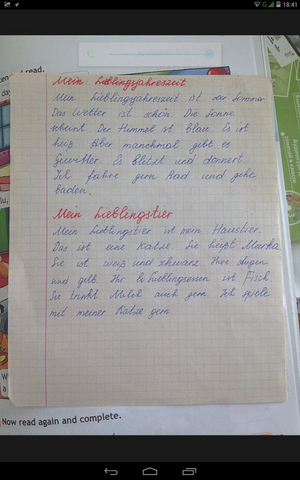 18:41
read.
Mein Lieblingsjahreszeit
Mein Lieblingsjahreszeit ist der Sommer
Das Wetter ist schön. Die Sonne
scheint. Der Himmel ist blau. Es ist
heiß. Aber manchmal gibt es
Gewitter. Es blitzt und donnert.
Ich fahre gern Rad und gehe
baden.
Mein Lieblingstier
Mein Lieblingstier ist mein Haustier.
Das ist eine Katze. Sie heißt
Sie ist weiß und schwarz. Ihre Augen
sind gelb. Ihr Lieblingsessen ist Fisch.
Sie trinkt Milch auch gern. Ich spiele
mit meiner Katze gern.
Now read again and complete.